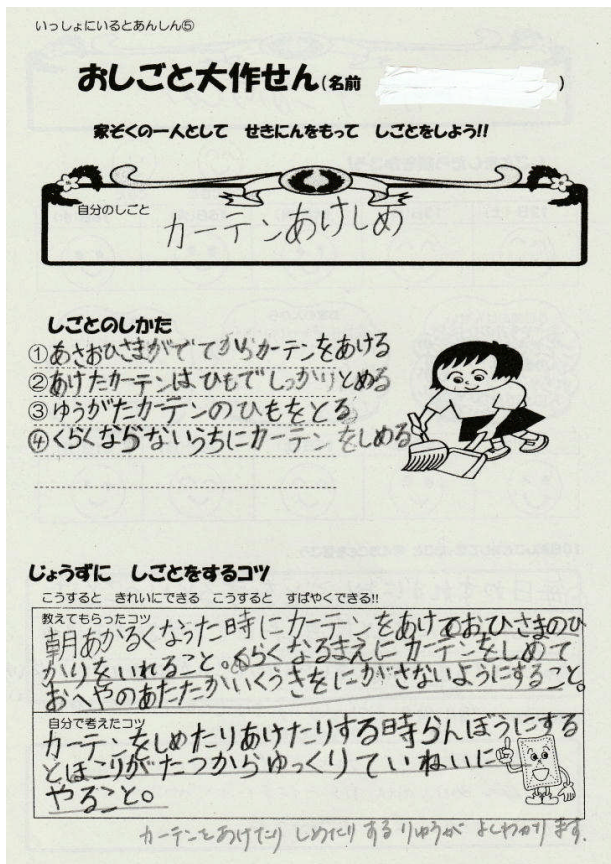 いっしょにいるとあんしん⑤
おしごと大作せん(名前 )
家ぞくの一人として せきにんをもって しごとをしよう!!
自分のしごと
カーテンあけしめ
しごとのしかた
①あさおひさまがでてからカーテンをあける
②あけたカーテンはひもでしっかりとめる
③ゆうがたカーテンのひもをとる
④くらくならないうちにカーテンをしめる
じょうずに しごとをするコツ
こうすると きれいにできる こうすると すばやくできる!!
教えてもらったコツ
朝あかるくなった時にカーテンをあけておひさまのひ
かりをいれること。くらくなるまえにカーテンをしめて
おへやのあたたかいくうきをにがさないようにすること。
自分で考えたコツ
カーテンをしめたりあけたりする時らんぼうにする
とほこりがたつからゆっくりていねいに
やること。
カーテンをあけたり しめたり する りゆうが よくわかります。